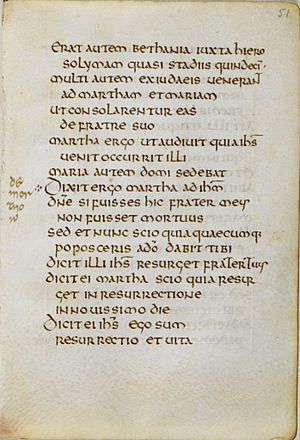 51
erat autem bethania iuxta hiero
solymam quasi stadiis quindeci·
multi autem ex iudaeis venerant
ad martham et mariam
ut consolarentur eas
de fratre suo
martha ergo ut audivit quia ihs
venit occurrit illi
maria autem domi sedebat
de mortuo
Dixit ergo martha ad ihm
dne si fuisses hic frater meus
non fuisset mortuus
sed et nunc scio quia quaecumq·
poposceris a do dabit tibi
dicit illi ihs resurget frater tuus
dicit ei martha scio quia resur
get in resurrectione
in novissimo die
Dicit ei ihs ego sum
resurrectio et vita